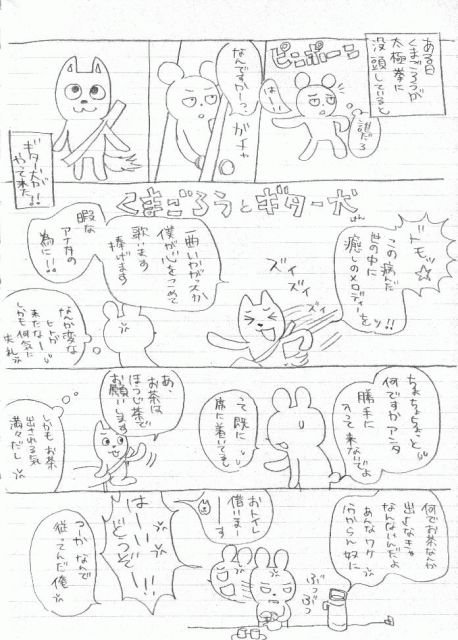 ある日
くまごろうが
太極拳に
没頭していると
ピンポーン
はーい
誰だろ
なんですかーっ
ガチャ
ギター犬が
やって来た!!
くまごろうとギター犬
ドモッ☆
この病んだ
世の中に
癒しのメロディーをッ!!
ズイ
ズイ
ズイ
一曲いかがッスか
僕が心をつめて
歌います
捧げます
暇な
アナタの
為に!!
なんか変な
ヒトが
来たなー
しかも何気に
失礼
ちょちょちょっと
何ですかアンタ
勝手に
入って来ないでよ
って既に
席に着いてる
あ、
お茶は
ほうじ茶で
お願いします
しかも お茶
出される気
満々だし
何でお茶なんか
出さなきゃ
なんないんだよ
あんなワケ
分からん奴に
ぶつ
ぶつ
おトイレ
借りまー
ーーす
はーい
どうぞー!!
つか なんで
従ってんだ俺